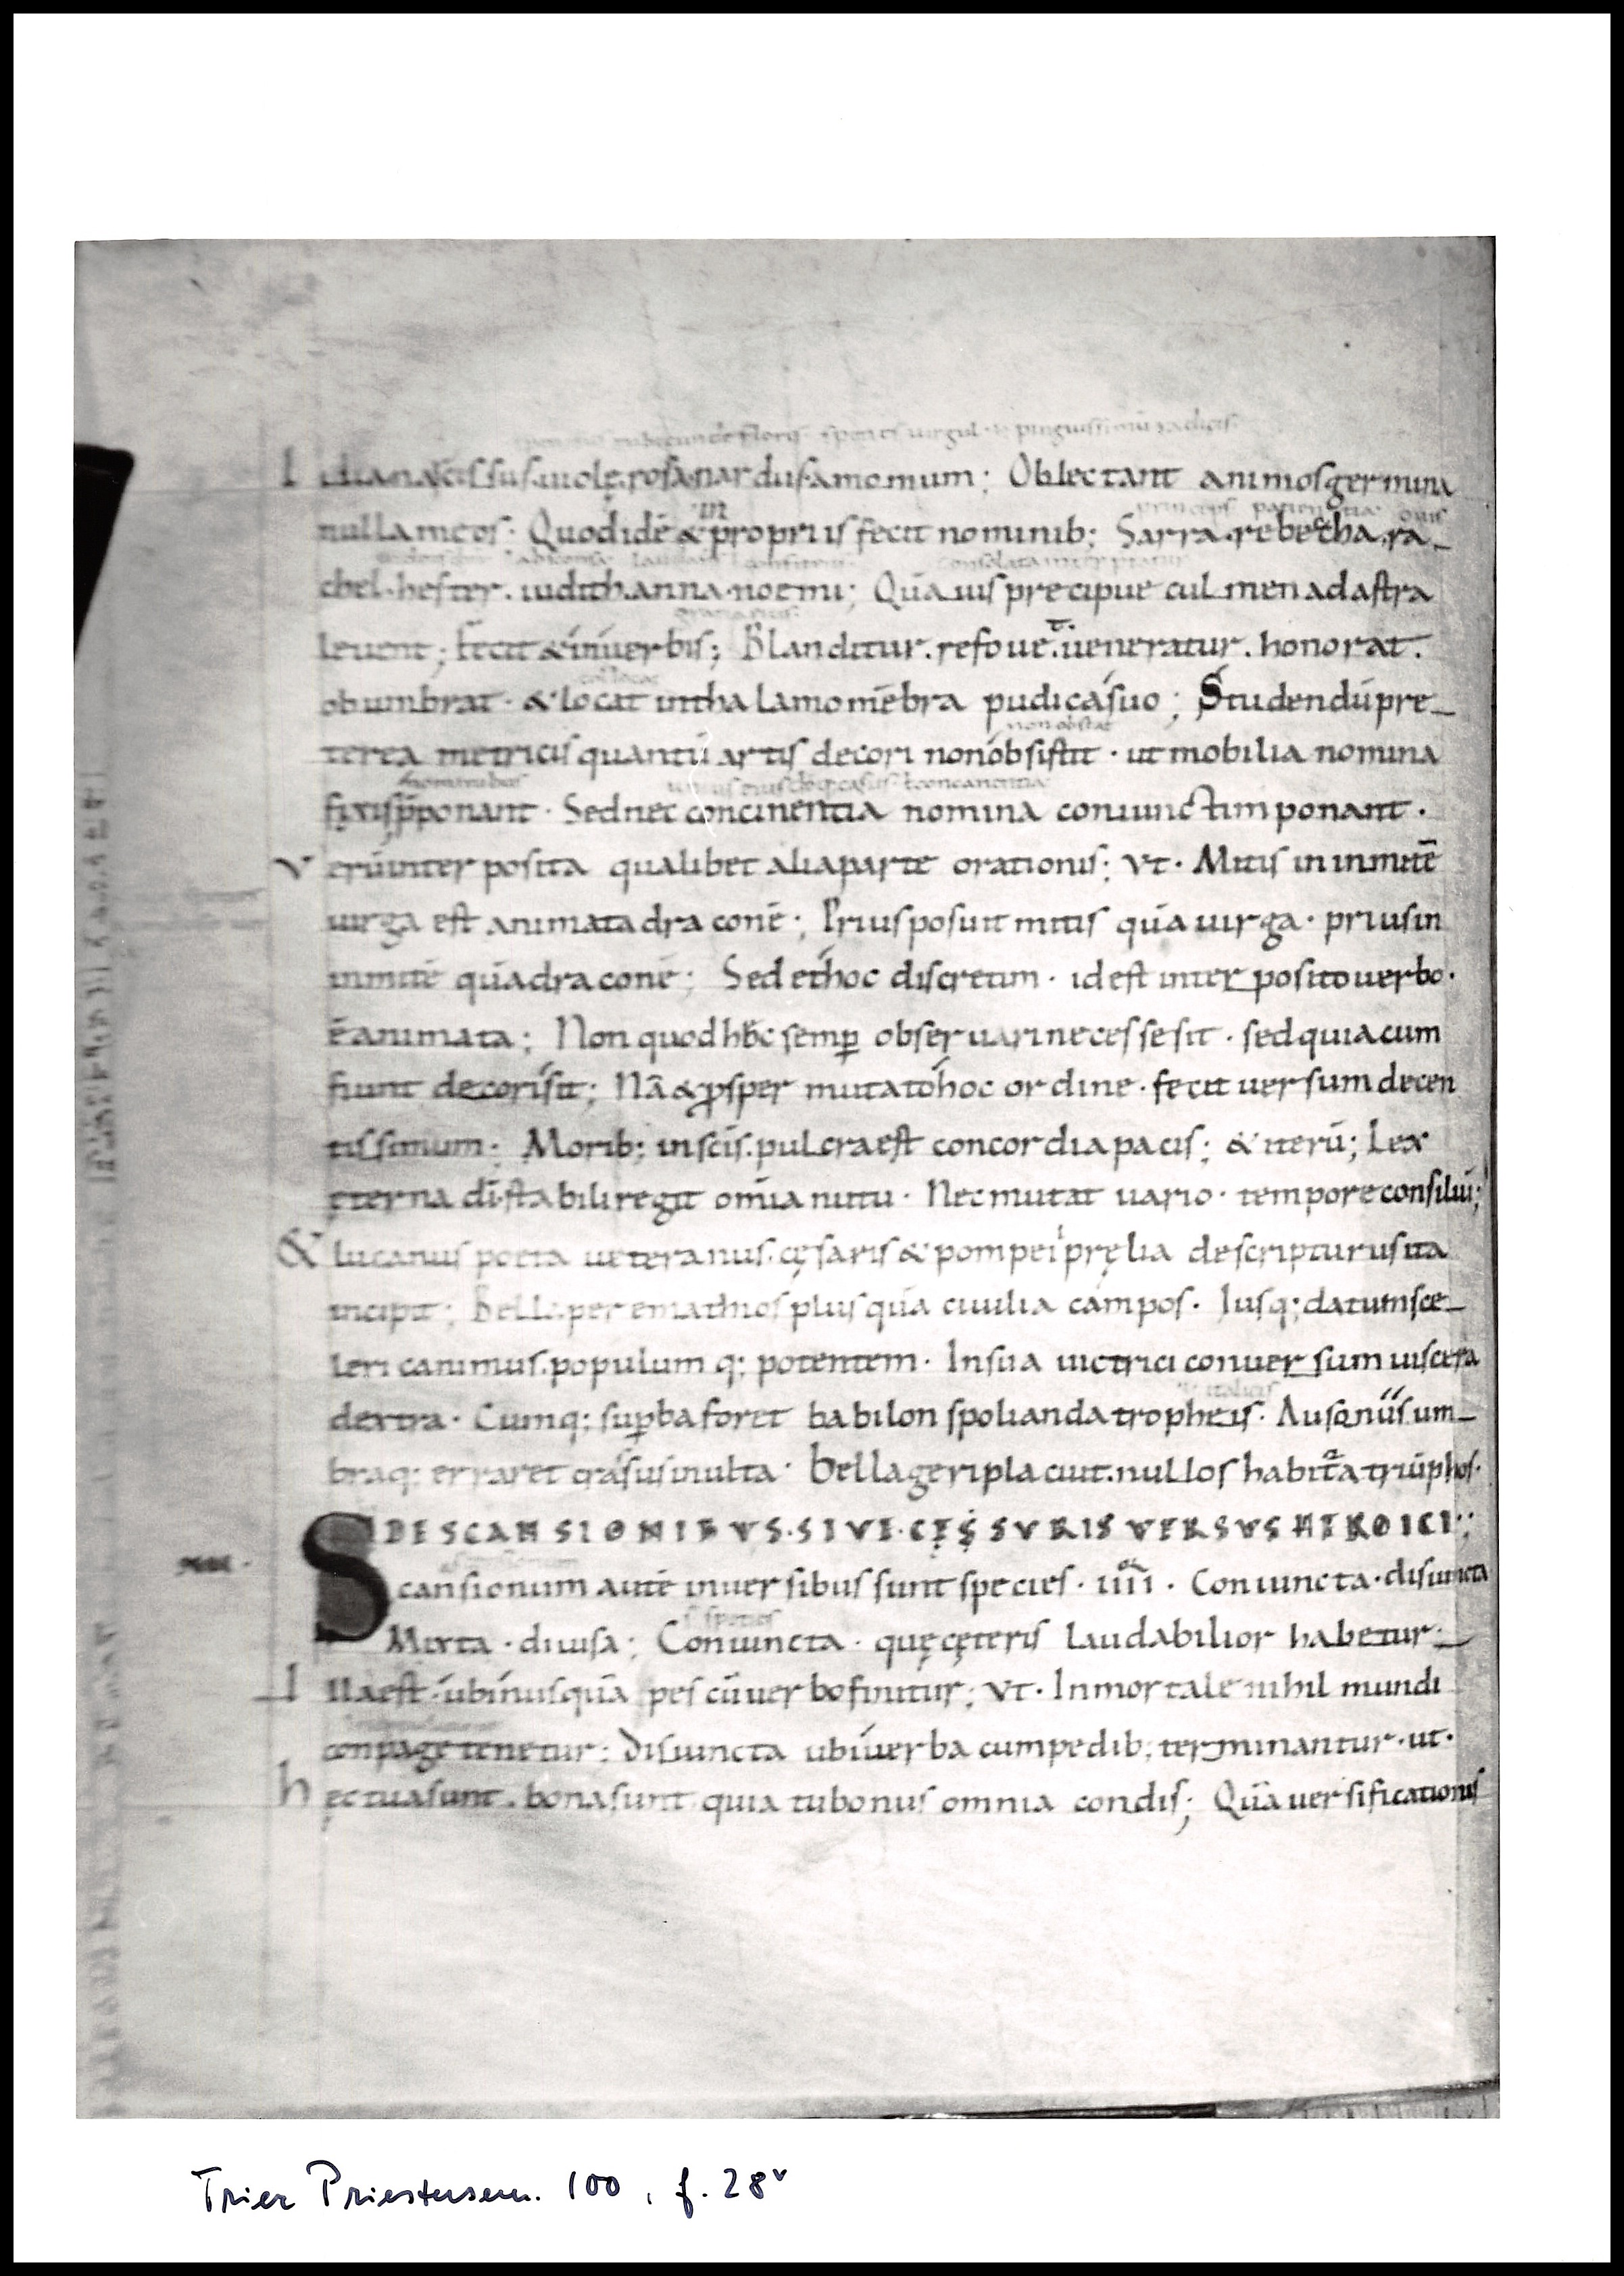 rubicunde floris · species uirgul · pinguissimū radicis
Lilia narcissus uiolę rosa nardus amomum ; Oblectant animos germina
in
princeps patientia ouis
nulla meos · Quod idē & propriis fecit nominib; Sarra · rebeccha · ra_
consolata
chel · hester · iudith · anna · noemi ; Quāuis precipue culmen ad astra
t
leuent ; fecit & in uerbis ; Blanditur . refouet . ueneratur . honorat .
collocat
obumbrat · & locat in thalamo mēbra pudica suo ; Studendū pre_
non obstat
terea metricis quantū artis decori non obsistit · ut mobilia nomina
nominibus
fixis p̄ponant · Sed nec concinentia nomina coniunctim ponant ·
Verū interposita qualibet alia parte orationis ; Vt · Mitis in inmitē
uirga est animata draconē ; Prius posuit mitis quā uirga · prius in
inmitē quā draconē ; Sed et hoc discretim · id est interposito uerbo ·
ē animata ; Non quod hoc semp obseruari necesse sit · sed quia cum
fiunt decori sit ; Nā & psper mutato hoc ordine · fecit uersum decen
tissimum ; Morib; in scīs · pulcra est concordia pacis ; & iterū ; Lex
ęterna dī stabili regit omīa nutu · Nec mutat uario · tempore consiliū ;
& lucanus poeta ueteranus · cęsaris & pompei pręlia descripturus ita
incipit ; Bella per emathios plus quā ciuilia campos · Iusq; datum sce_
leri canimus · populum q; potentem · In sua uictrici conuersum uiscera
italicis
dextra · Cumq; supba foret babilon spolianda tropheis · Ausoniis um_
braq; erraret crassus inulta · Bella geri placuit · nullos habitura triūphos ·
DE SCANSIONIBVS · SIVE · CĘSSVRIS VERSVS HEROICI ;
Scansionum autē in uersibus sunt species · iiii · Coniuncta · disiuncta
s species
Mixta · diuisa ; Coniuncta · quę cęteris laudabilior habetur ·
Illa est · ubi nusquā pes cū uerbo finitur ; Vt · Inmortale nihil mundi
conpage tenetur ; Disiuncta ubi uerba cum pedib; terminantur · ut ·
hęc tua sunt · bona sunt quia tu bonus omnia condis ; Quā uersificationis
Trier Priestersem. 100, f. 28v